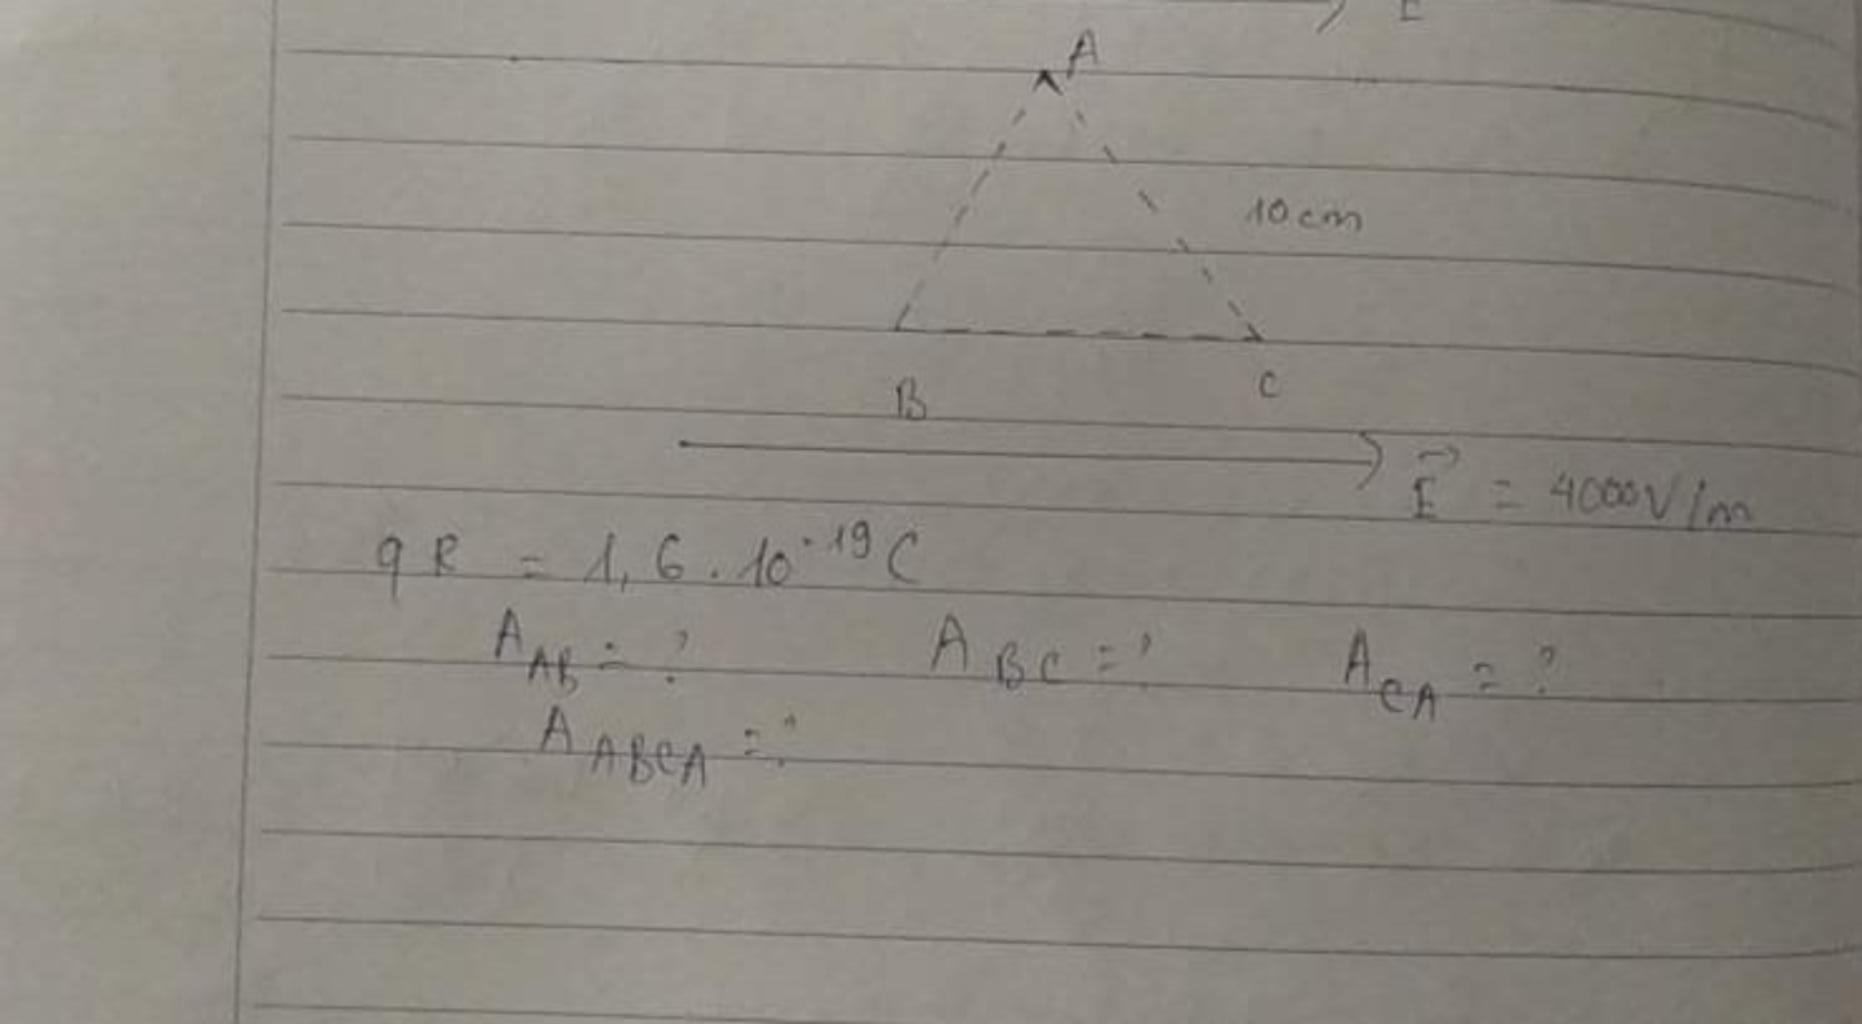 A
10 cm
B C
E = 4000V/m
qR = 1,6 . 10^-19 C
A_AB = ? A_BC = ? A_CA = ?
A_ABCA = ?